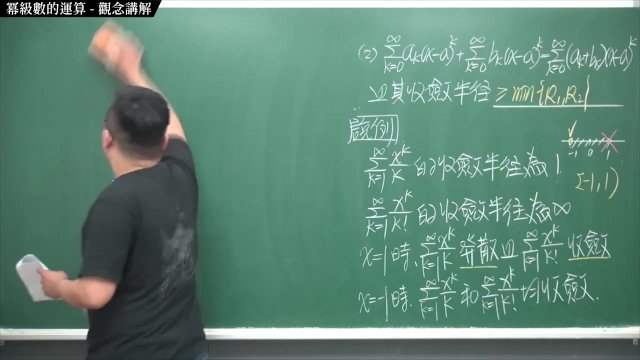 冪級數的運算 - 觀念講解
(2) ∑_{k=0}^{∞} a_k(x-a)^k + ∑_{k=0}^{∞} b_k(x-a)^k = ∑_{k=0}^{∞} (a_k+b_k)(x-a)^k
且其收斂半徑 ≥ min{R₁,R₂}
範例
-1 0 1
∑_{k=1}^{∞} x^k/k 的收斂半徑為 1
[-1,1)
∑_{k=1}^{∞} x^k/k! 的收斂半徑為 ∞
x=1時, ∑_{k=1}^{∞} x^k/k 發散且 ∑_{k=1}^{∞} x^k/k! 收斂
x=-1時, ∑_{k=1}^{∞} x^k/k 和 ∑_{k=1}^{∞} x^k/k! 均收斂.